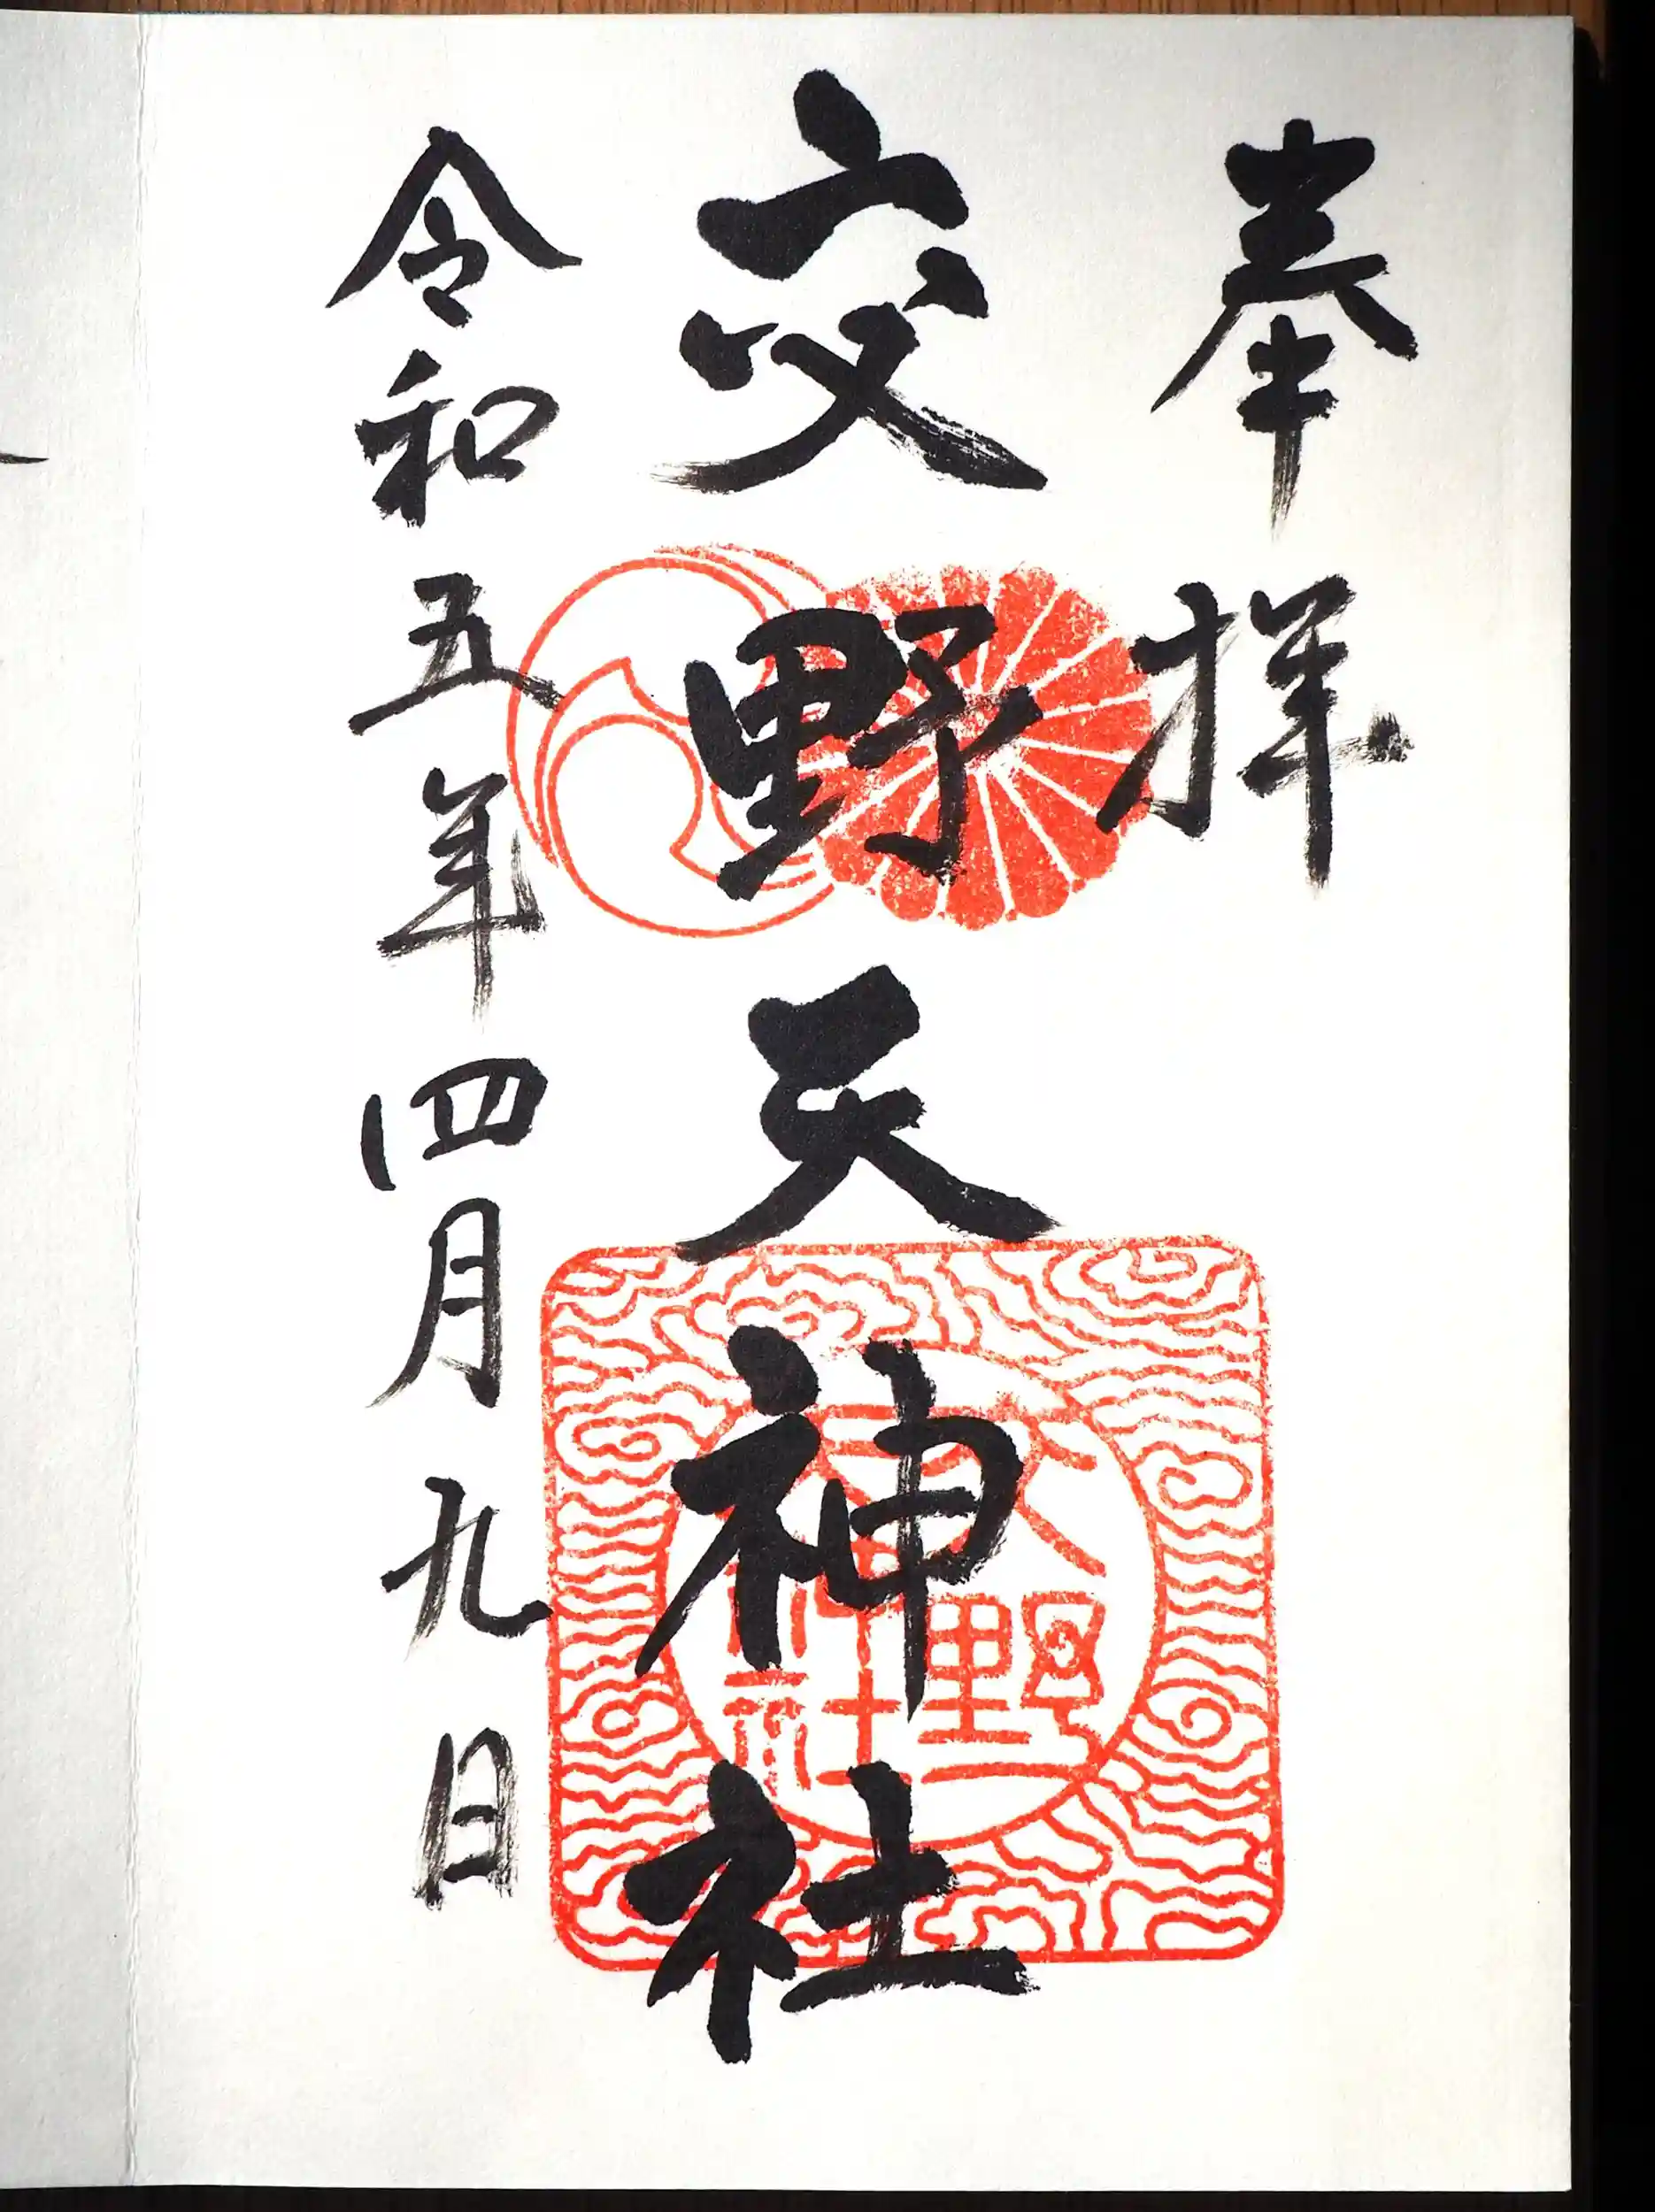 奉拝
交野天神社
令和五年四月九日
交野
天神社